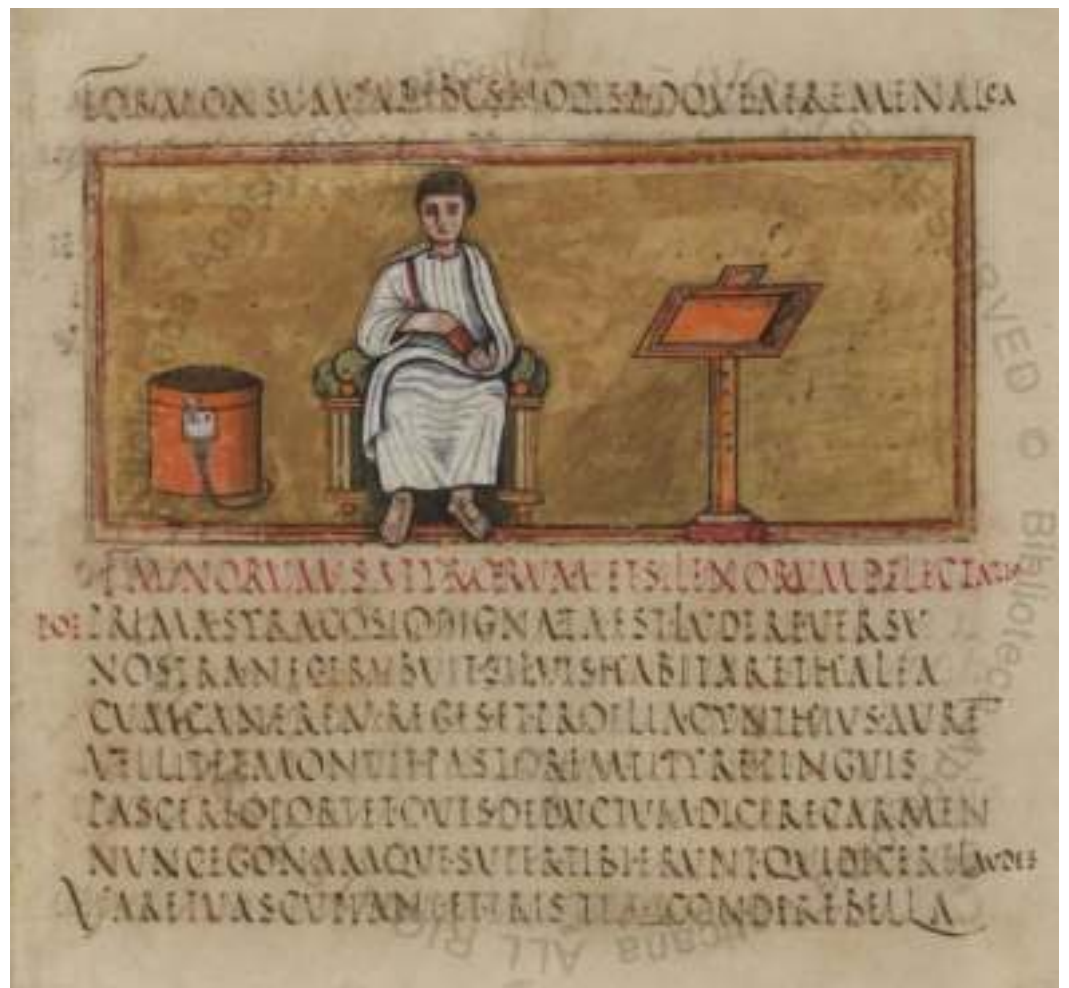 FORMONSVMPARIBVSNODISADQVEAEREMENALCA
FAVNORVMSATVRORVMETSILENORVMDELECTATIO
POE PRIMASYRACOSIODIGNATAESTLVDEREVERSV
NOSTRANECERVBVITSILVISHABITARETHALEA
CVMCANEREMREGESETPROELIACYNTHIVSAVRE
VELLITETADMONVITPASTOREMTITYREPINGVIS
PASCEREOPORTETOVISDEDVCTVMDICERECARMEN
NVNCEGONAMQVESVPERTIBIERVNTQVIDICERELAVDES
VARETVASCVPIANTETTRISTIACONDEREBELLA